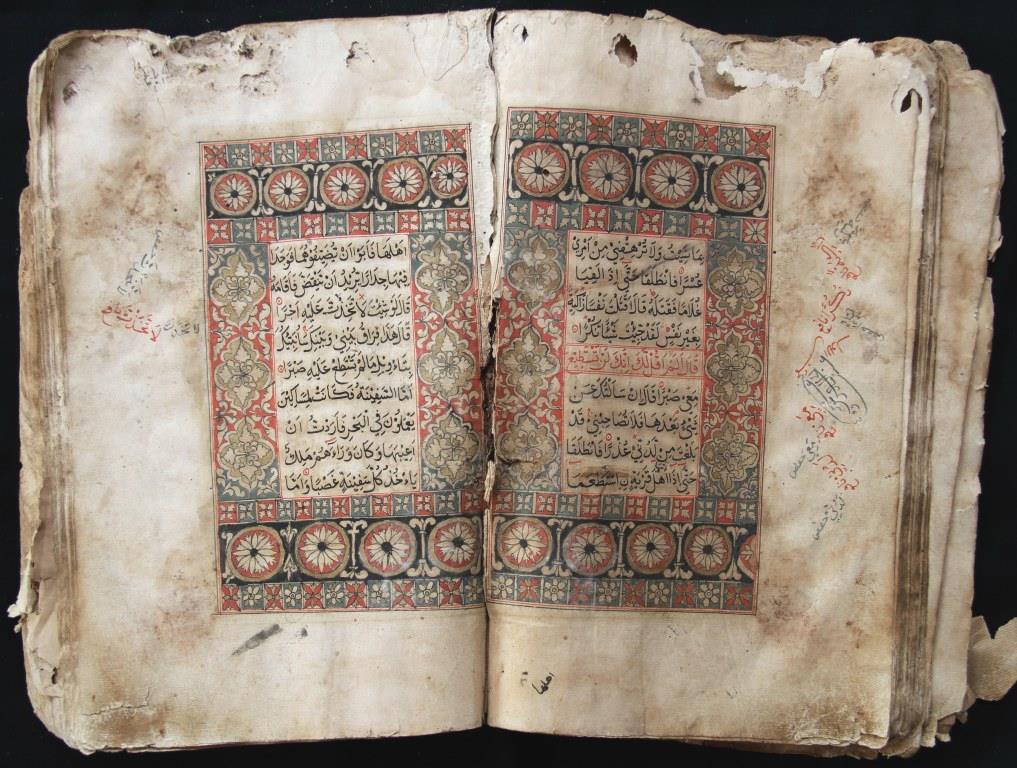 بما نسيت ولا ترهقني من امري
عسرا فانطلقا حتى اذا لقيا
غلاما فقتله قال اقتلت نفسا زكية
بغير نفس لقد جئت شيئا نكرا
قال الم اقل لك انك لن تستطيع
معي صبرا قال ان سالتك عن
شيء بعدها فلا تصاحبني قد
بلغت من لدني عذرا فانطلقا
حتى اذا اهل قرية استطعما
اهلها
اهلها فابوا ان يضيفوهما فوجدا
فيها جدارا يريد ان ينقض فاقامه
قال لو شئت لتخذت عليه اجرا
قال هذا فراق بيني وبينك سانبئك
بتاويل ما لم تستطع عليه صبرا
اما السفينة فكانت لمساكين
يعملون في البحر فاردت ان
اعيبها وكان وراءهم ملك
ياخذ كل سفينة غصبا واما